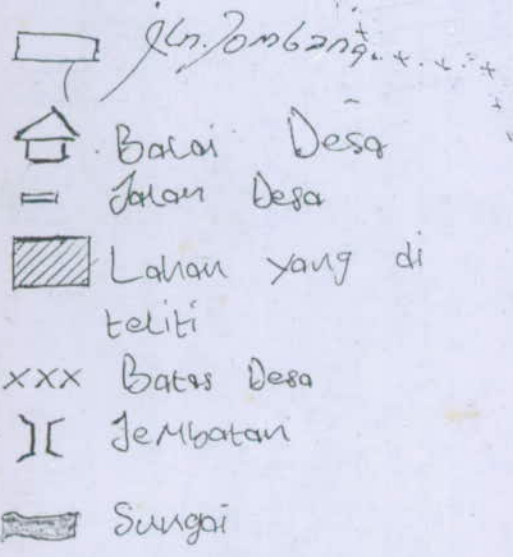 Jln. Jombang
Balai Desa
Jalan Desa
Lahan yang di
teliti
xxx Batas Desa
Jembatan
Sungai